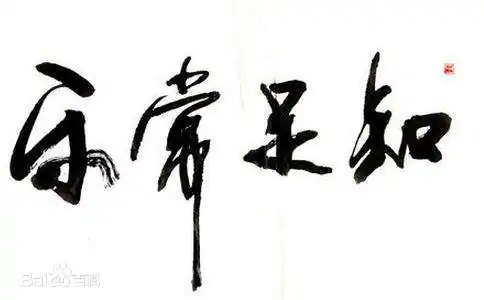 知足常乐
Baidu百科